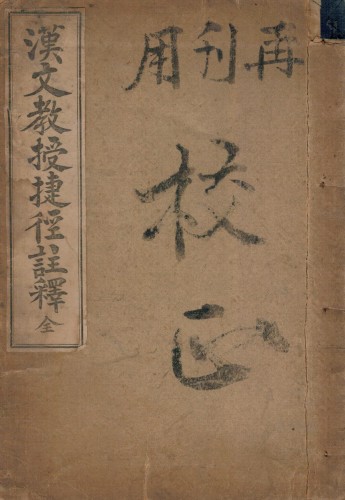 再刊用
校正
漢文教授捷徑註釋 全